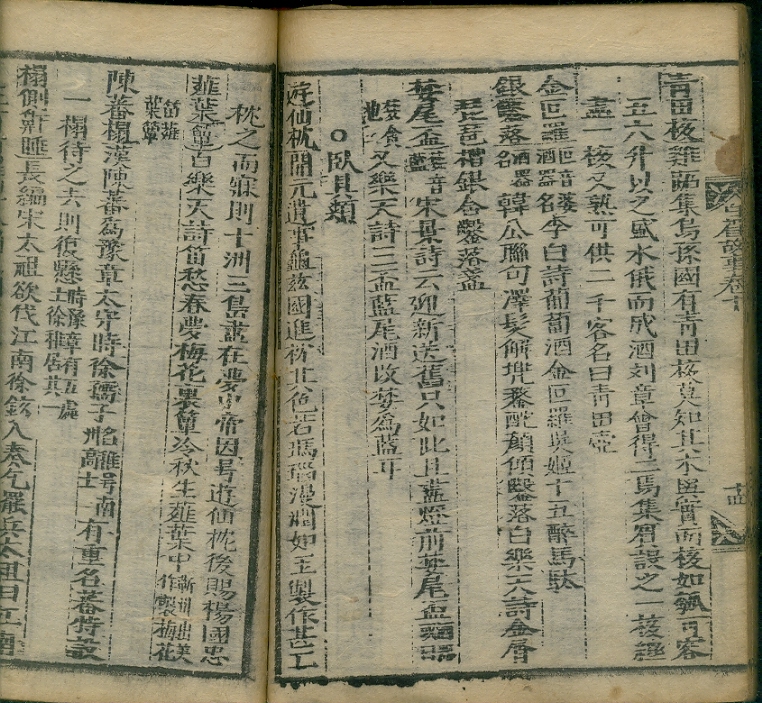 青田核雞跖集烏孫國有青田核莫知其木與實而核如瓠可容
五六升以之盛水俄而成酒刘章曾得二焉集賓設之一核纔
盡一核又熟可供二千客名曰青田壺
金叵羅叵音頗酒器名李白詩葡萄酒金叵羅吳姬十五醉馬䭾
銀鑿落酒器名韓公聯句澤髮解兠鍪酡顔傾鑿落白樂天詩金屑
琵琶槽銀含鑿落盞
婪尾盃婪音藍宋景詩云迎新送舊只如此且盡燈前婪尾盃
又樂天詩三盃藍尾酒改婪爲藍耳
○臥具類
遊仙枕開元遺事龜兹國進枕其色若瑪瑙溫潤如玉製作甚工
枕之而寐則十洲三島盡在夢中帝因号遊仙枕後賜楊國忠
薤葉簟白樂天詩笛愁春夢梅花裏簟冷秋生薤葉中蘄州出美
笛薤葉簟
陳蕃榻漢陳蕃爲豫章太守時徐孺子名稚号南州高士有重名蕃特設
一榻待之去則復懸時豫章有五處士徐稚居其一
榻側鼾睡長編宋太祖欲伐江南徐鉉入奏乞罷兵太祖曰江南